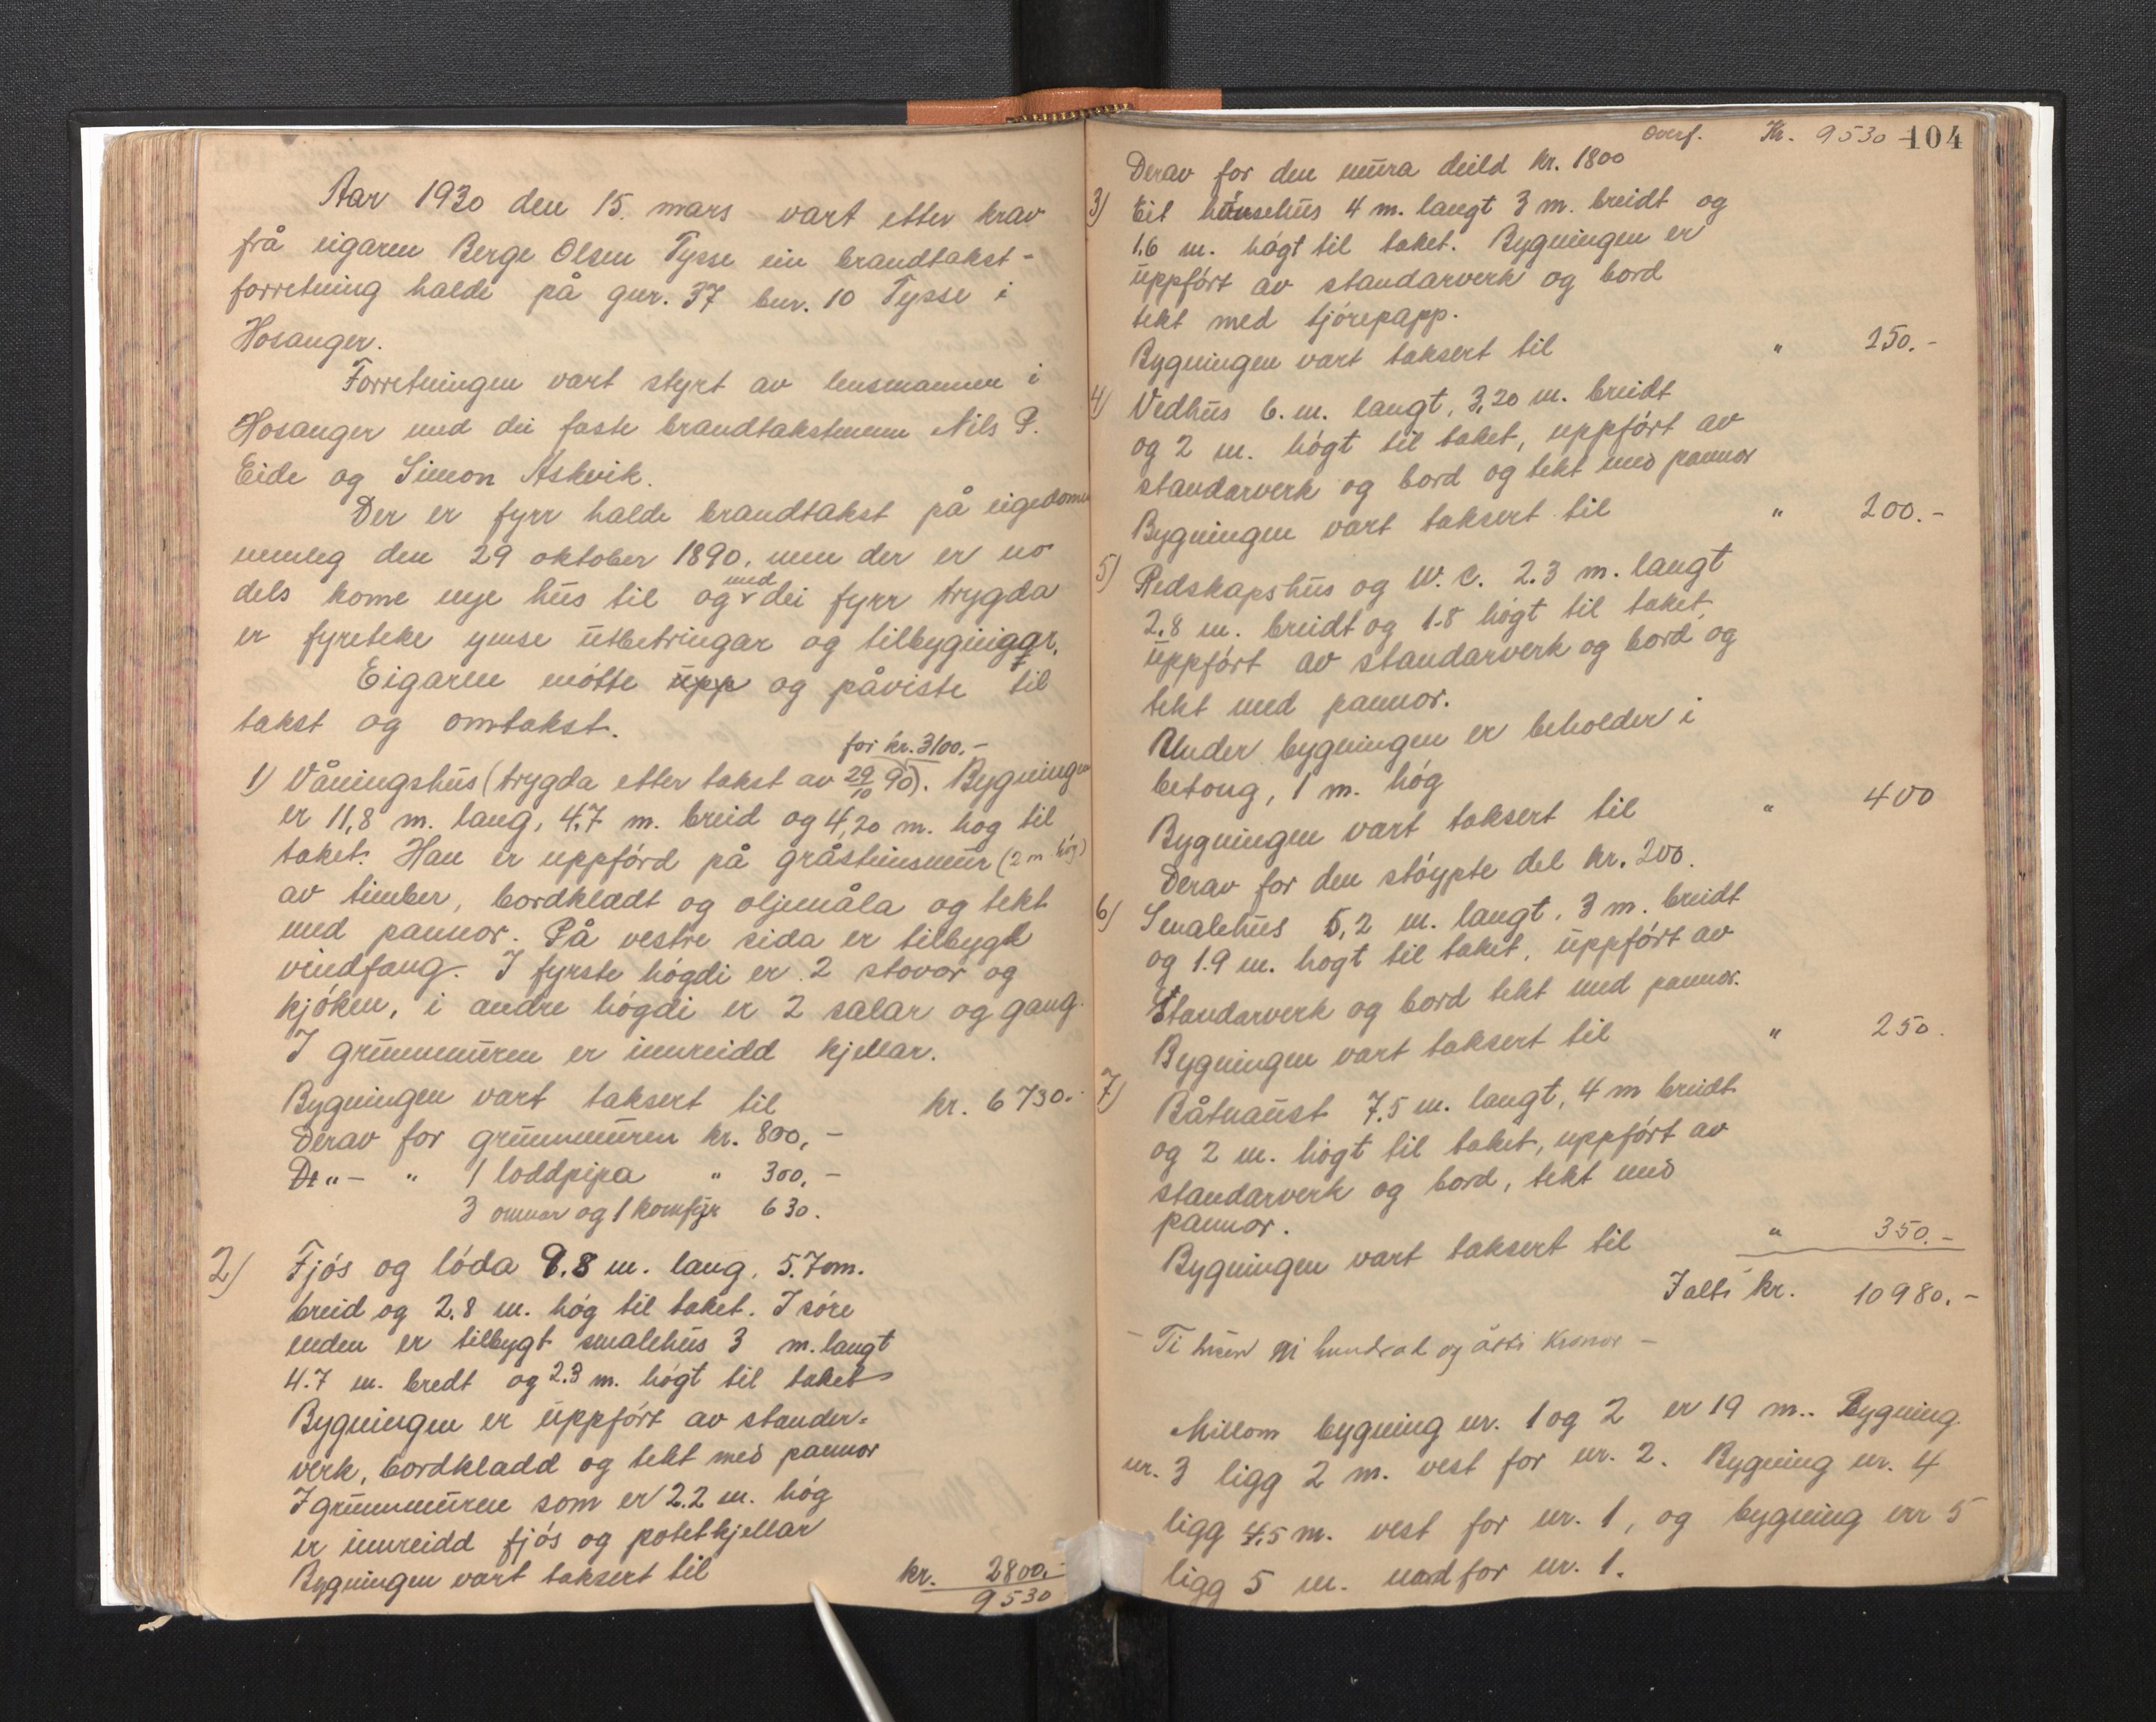 Aar 1930 den 15. mars vart etter krav
frå eigaren Berge Olsen Tysse ein brandtakst-
forretning halde på gnr. 37 bnr. 10 Tysse i
Hosanger.
Forretningen vart styrt av lensmannen i
Hosanger med dei faste brandtakstmenn Nils P.
Eide og Simon Askvik.
Der er fyrr halde brandtakst på eigedomen
nemleg den 29 oktober 1890, men der er no
dels kome nye hus til og med dei fyrr trygda
er fyreteke ymse utbetringar og tilbygningar.
Eigaren møtte upp og påviste til
takst og omtakst.
for kr. 3100.-
1) Våningshus (trygda etter takst av 29/10 90). Bygningen
er 11,8 m. lang, 4.7 m. breid og 4,20 m. høg til
taket. Han er uppførd på gråsteinsmur (2 m. høg)
av timber, bordklædt og oljemåla og tekt
med pannor. På vestre sida er tilbygt
vindfang. I fyrste høgdi er 2 stovor og
kjøken, i andre høgdi er 2 salar og gang.
I grunnmuren er innreidd kjellar.
Bygningen vart taksert til kr. 6730.-
Derav for grunnmuren kr. 800,-
De "- " 1 loddpipa " 300,-
3 omnar og 1 komfyr 630.
2) Fjøs og løda 9.8 m. lang, 5.70m.
breid og 2.8 m. høg til taket. I søre
enden er tilbygt smalehus 3 m. langt
4.7 m. bredt og 2.3 m. høgt til taket
Bygningen er uppført av stander-
verk, bordkladd og tekt med pannor
I grunnmuren som er 2.2 m. høg
er innreidd fjøs og potetkjellar
Bygningen vart taksert til kr. 2800.-
9530
Overf. Kr. 9530 104
Derav for den mura deild kr. 1800
3) Eit hønsehus 4 m. langt 3 m. breidt og
1.6 m. høgt til taket. Bygningen er
uppført av standarverk og bord
tekt med tjørepapp.
Bygningen vart taksert til " 250.-
4) Vedhus 6. m. langt, 3,20 m. breidt
og 2 m. høgt til taket, uppført av
standarverk og bord og tekt med pannor
Bygningen vart taksert til " 200.-
5) Redskapshus og W. C. 2.3 m. langt
2.8 m. breidt og 1.8 høgt til taket,
uppført av standarverk og bord og
tekt med pannor.
Under bygningen er beholder i
betong, 1 m. høg
Bygningen vart taksert til " 400
Derav for den støypte del kr. 200.
6) Smalehus 5,2 m. langt, 3 m. breidt
og 1.9 m. høgt til taket, uppført av
Standarverk og bord tekt med pannor.
Bygningen vart taksert til " 250.
7) Båtnaust 7.5 m. langt, 4 m breidt
og 2 m. høgt til taket, uppført av
standarverk og bord, tekt med
pannor.
Bygningen vart taksert til " 350.-
Ialt kr. 10980.-
- Ti tusen ni hundrad og åtti kronor -
Millom bygning nr. 1 og 2 er 19 m.. Bygning
nr. 3 ligg 2 m. vest for nr. 2. Bygning nr. 4
ligg 4,5 m. vest for nr. 1, og bygning nr 5
ligg 5 m. nord for nr. 1.